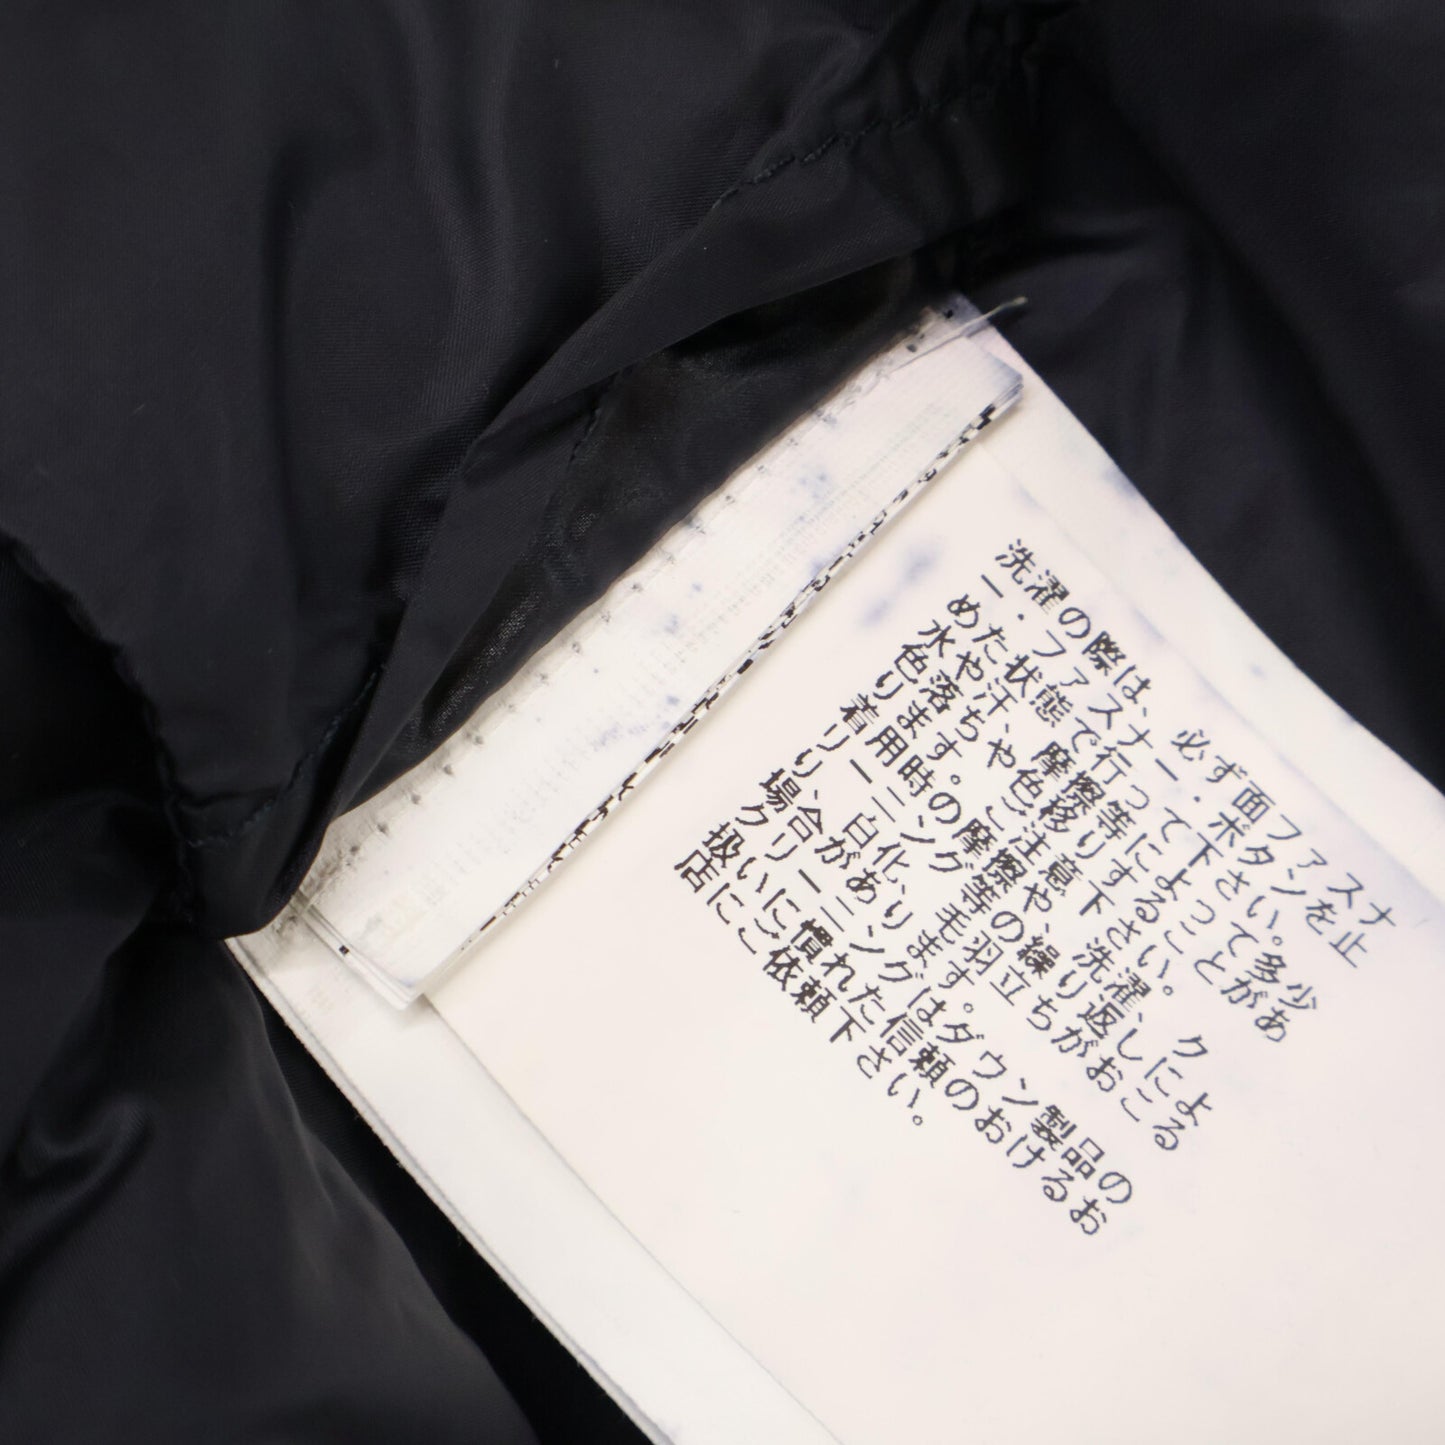 洗濯の際は、必ず面ファスナ
ー・ファスナー・ボタンを止
めた状態で行って下さい。多少
水や汗、摩擦等によって多少
色落ちや色移りすることがあ
ります。ご注意下さい。
着用時の摩擦や、洗濯、ク
リーニング等の繰り返しによ
り、白化、毛羽立ちがおこる
場合があります。
クリーニングはダウン製品の
扱いに慣れた信頼のおけるお
店にご依頼下さい。